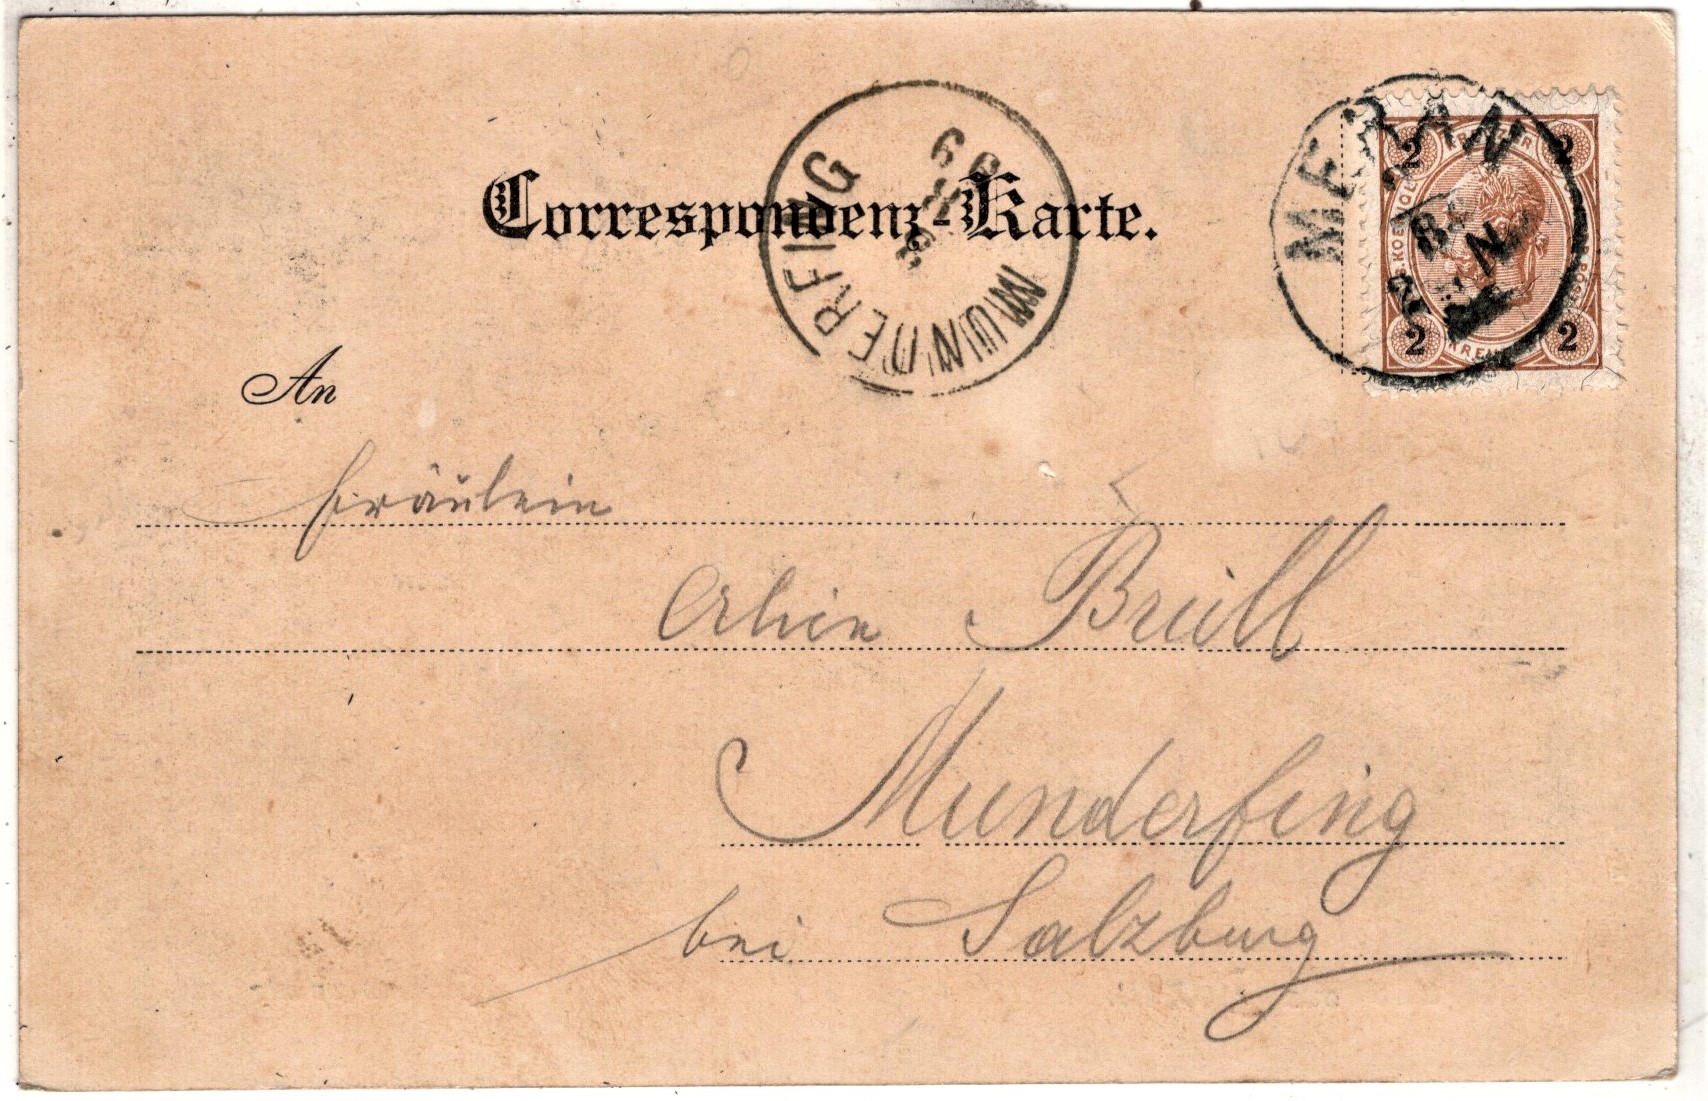 Correspondenz-Karte.
MUNDERFING
MERAN
2 2
2 2
An
Fräulein
Brüll
Munderfing
bei Salzburg